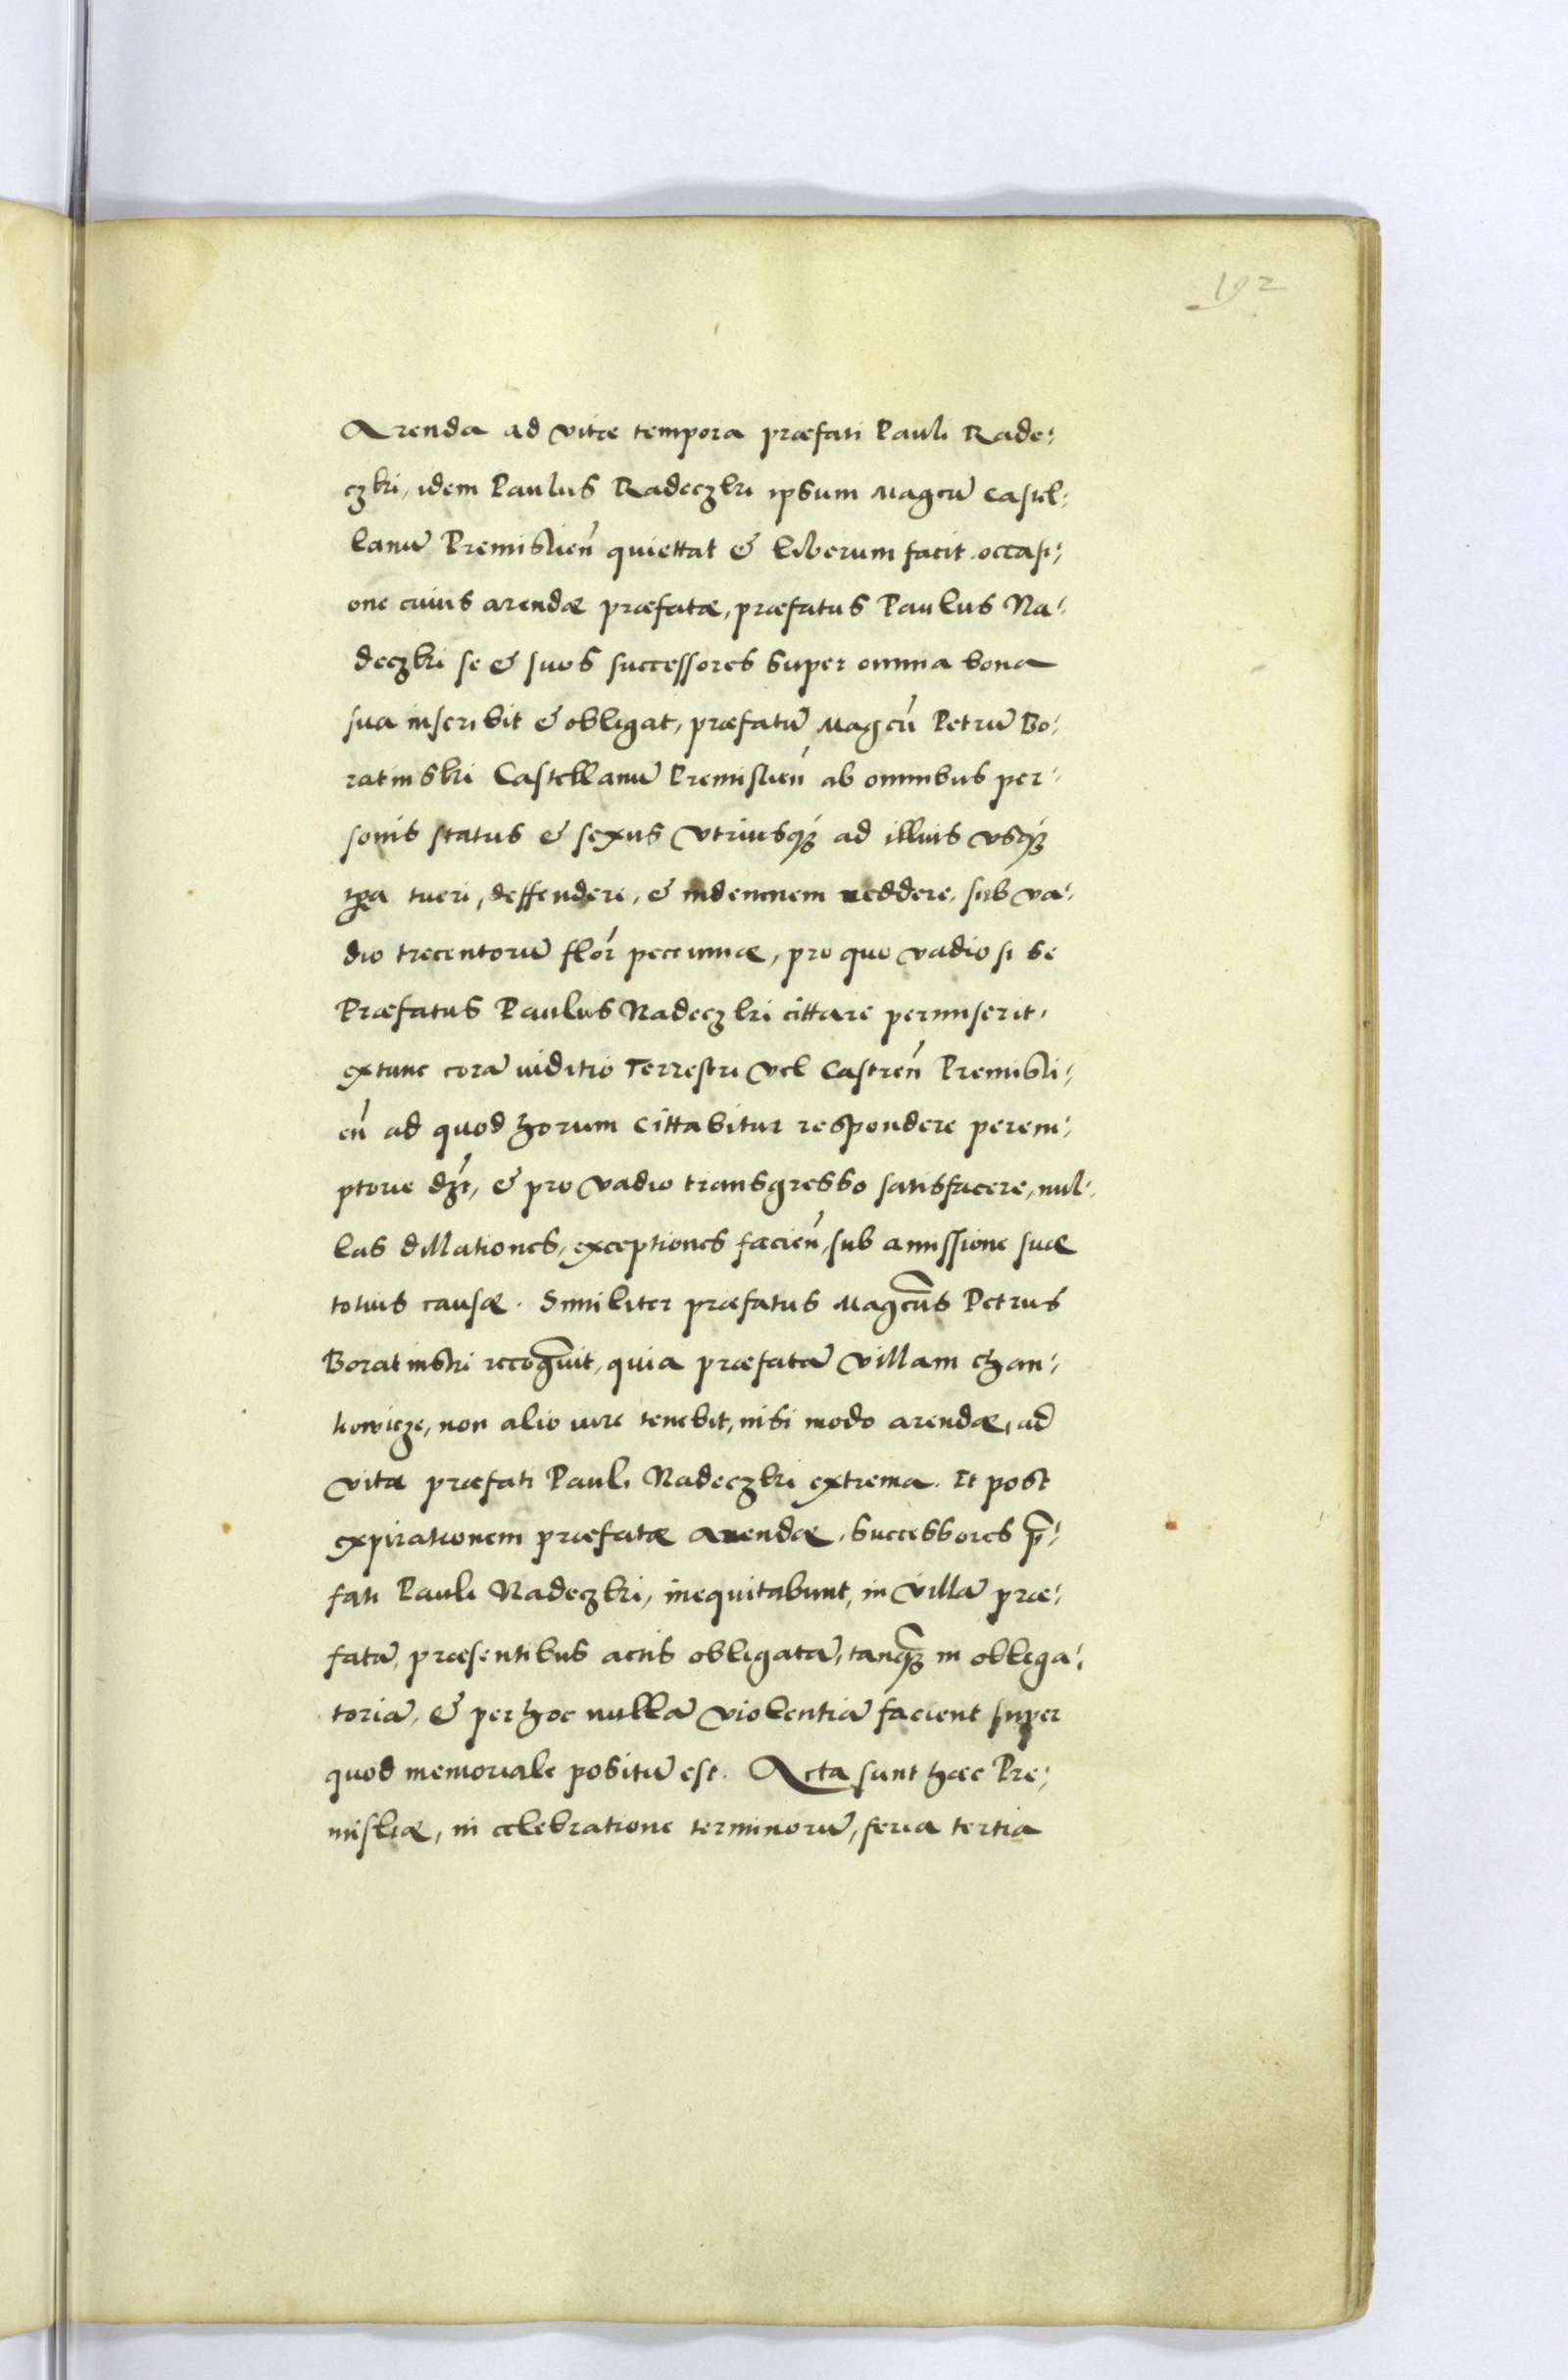 192
Arenda ad vitæ tempora præfati Pauli Rade:
czki, idem Paulus Radeczki ipsum Magcũ Castel:
lanũ Premislien̄ quiettat & liberum facit occasi:
one cuius arendæ præfatæ, præfatus Paulus Na:
deczki se & suos successores super omnia bona
sua inscribit & obligat, præfatũ Magcũ Petrũ Bo:
ratinski Castellanũ Premislien̄ ab omnibus per:
sonis status & sexus vtriusq₃ ad illius vsq₃
tp̄a tueri, deffendere, & indemnem reddere, sub va:
dio trecentorũ flor̄ pecuniæ, pro quo vadio si se
Præfatus Paulus Nadeczki cittare permiserit,
extunc corã iuditio Terrestri vel Castren̄ Premisli:
en̄ ad quod horum cittabitur respondere perem:
ptorie dh̄t, & pro vadio transgresso satisfacere, nul:
las dillationes, exceptiones facien̄, sub amissione suæ
totius causæ. Similiter præfatus Magcūs Petrus
Boratinski recogn̄uit, quia præfatã villam Chan:
kowicze, non alio iure tenebit, nisi modo arendæ, ad
vitæ præfati Pauli Nadeczki extrema. Et post
expirationem præfatæ arendæ, successores p̄:
fati Pauli Nadeczki, inequitabunt, in villã præ:
fatã, præsentibus actis obligatã, tanq̄₃ in obliga:
toriã, & per hoc nullã violentiã facient super
quod memoriale positũ est. Acta sunt hæc Pre:
misliæ, in celebratione terminorũ, feria tertia